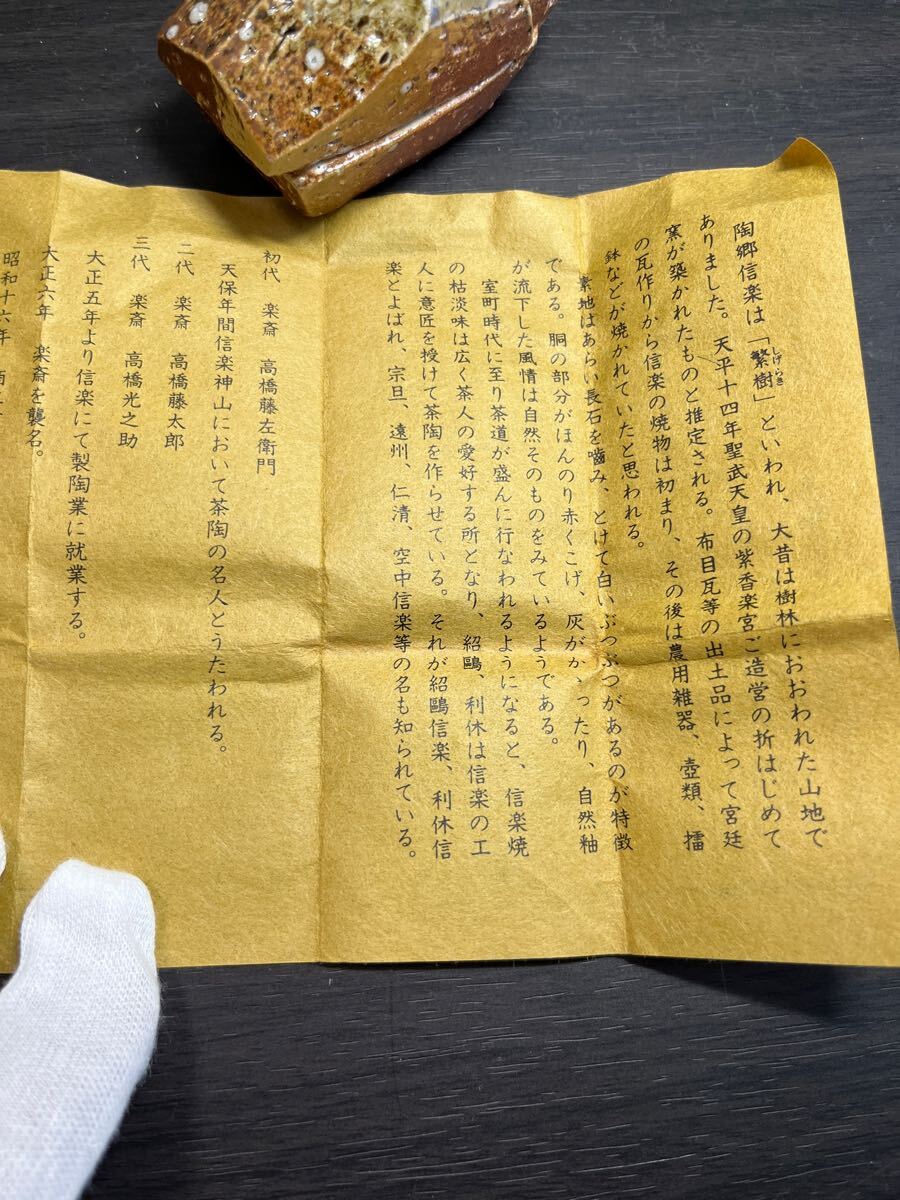 陶郷信楽は「繁樹」といわれ、大昔は樹林におおわれた山地で
しげらき
ありました。天平十四年聖武天皇の紫香楽宮ご造営の折はじめて
窯が築かれたものと推定される。布目瓦等の出土品によって宮廷
の瓦作りから信楽の焼物は初まり、その後は農用雑器、壺類、擂
鉢などが焼かれていたと思われる。
素地はあらい長石を噛み、とけて白いぶつぶつがあるのが特徴
である。胴の部分がほんのり赤くこげ、灰がかゝったり、自然釉
が流下した風情は自然そのものをみているようである。
室町時代に至り茶道が盛んに行なわれるようになると、信楽焼
の枯淡味は広く茶人の愛好する所となり、紹鷗、利休は信楽の工
人に意匠を授けて茶陶を作らせている。それが紹鷗信楽、利休信
楽とよばれ、宗旦、遠州、仁清、空中信楽等の名も知られている。
初代 楽斎 高橋藤左衛門
天保年間信楽神山において茶陶の名人とうたわれる。
二代 楽斎 高橋藤太郎
三代 楽斎 高橋光之助
大正五年より信楽にて製陶業に就業する。
大正六年 楽斎を襲名。
昭和十六年